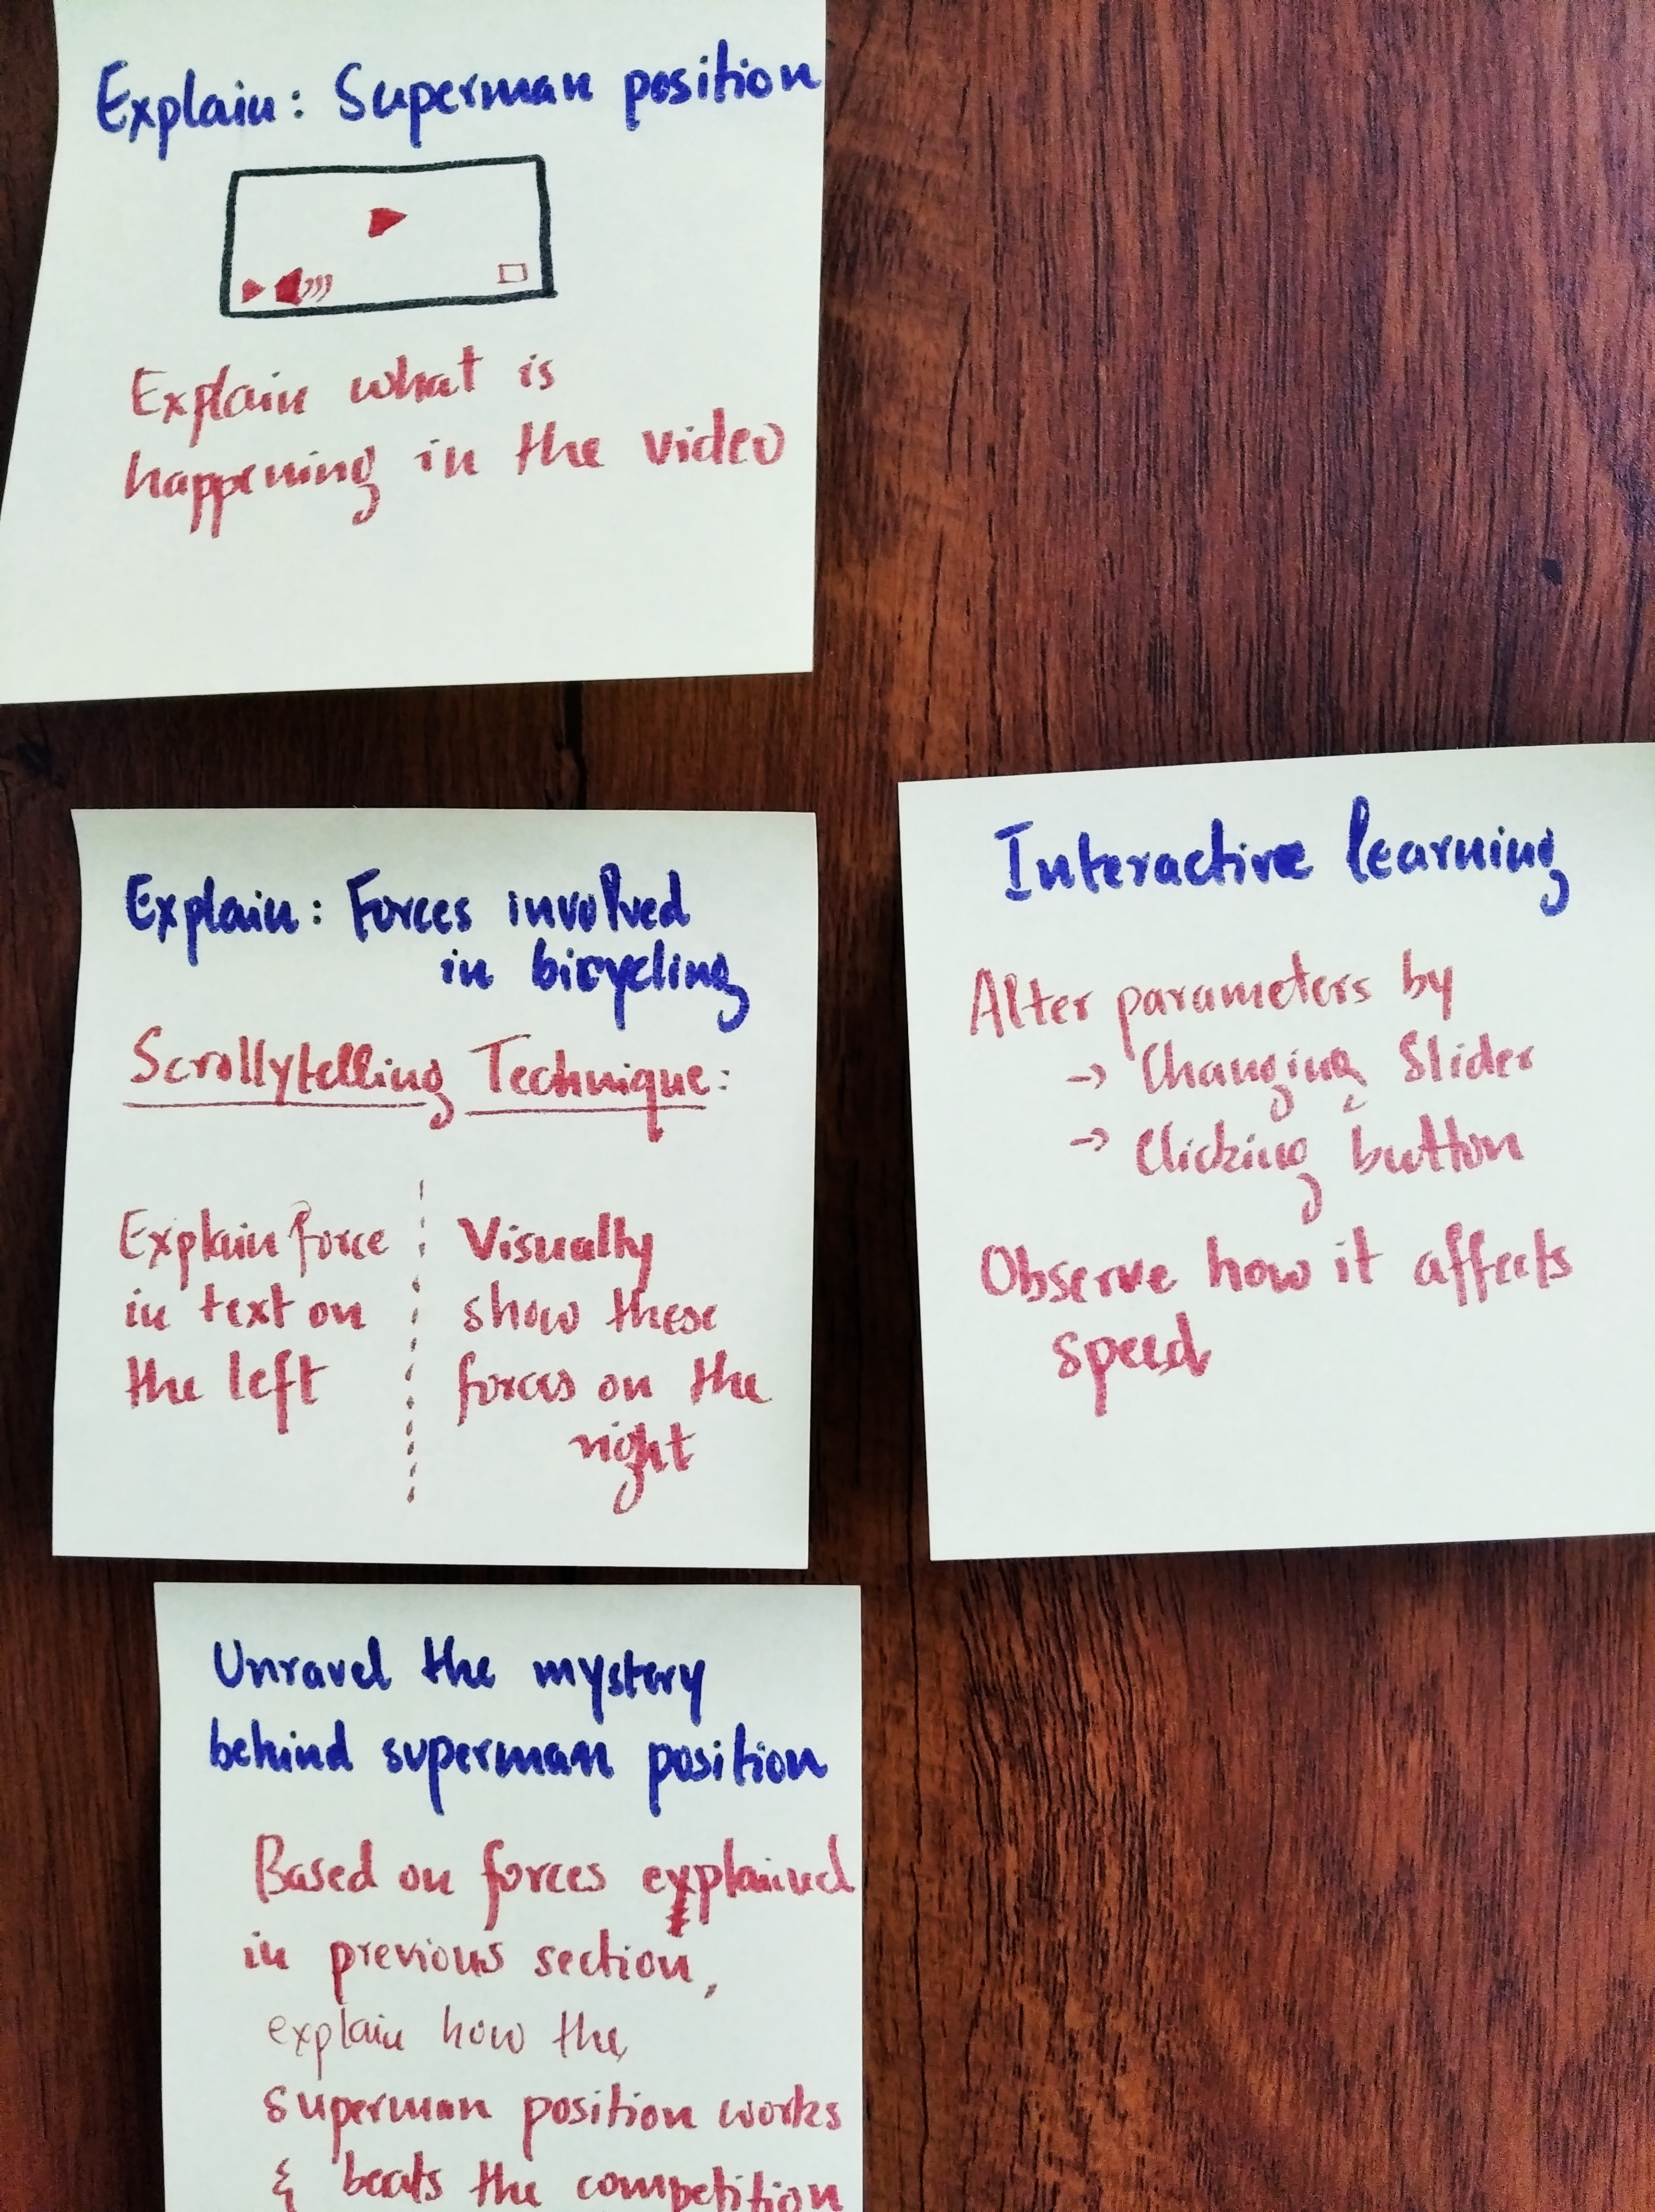 Explain: Superman position
Explain what is
happening in the video
Explain: Forces involved
in bicycling
Scrollytelling Technique:
Explain force
in text on
the left
Visually
show these
forces on the
right
Interactive learning
Alter parameters by
→ Changing Slider
→ Clicking button
Observe how it affects
speed
Unravel the mystery
behind superman position
Based on forces explained
in previous section,
explain how the
superman position works
& beats the competition